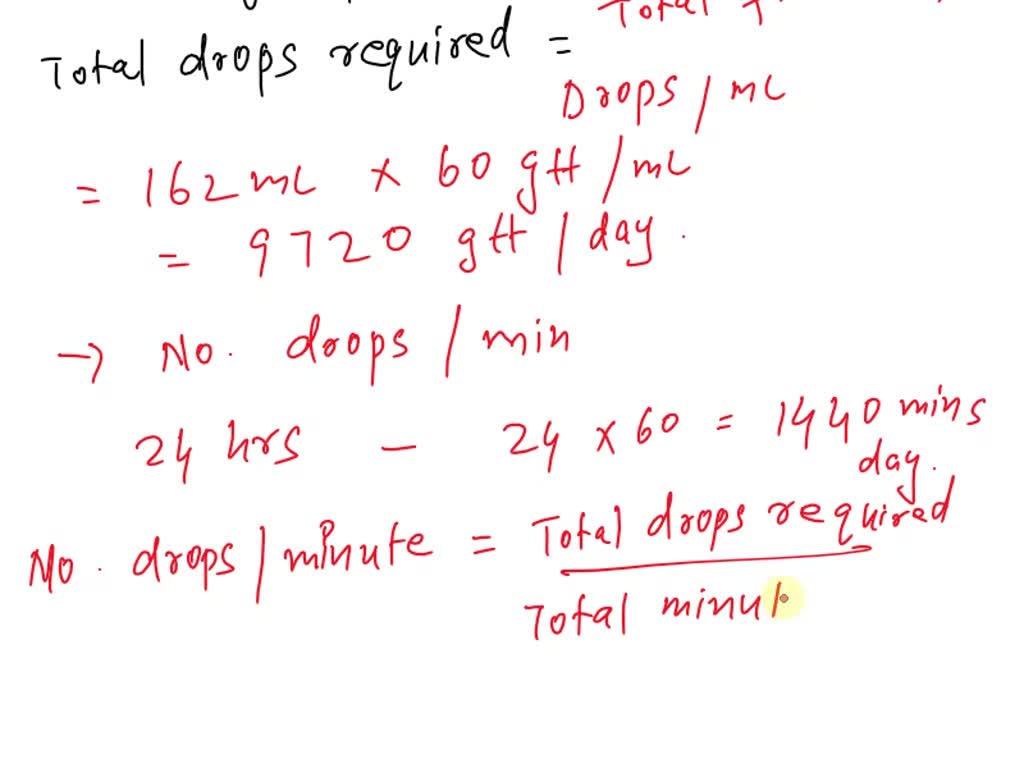 Total
Total drops required =
Drops / mL
= 162 mL × 60 gtt / mL
= 9720 gtt / day.
→ No. drops / min
24 hrs - 24 × 60 = 1440 mins
day.
No. drops / minute = Total drops required
Total minut